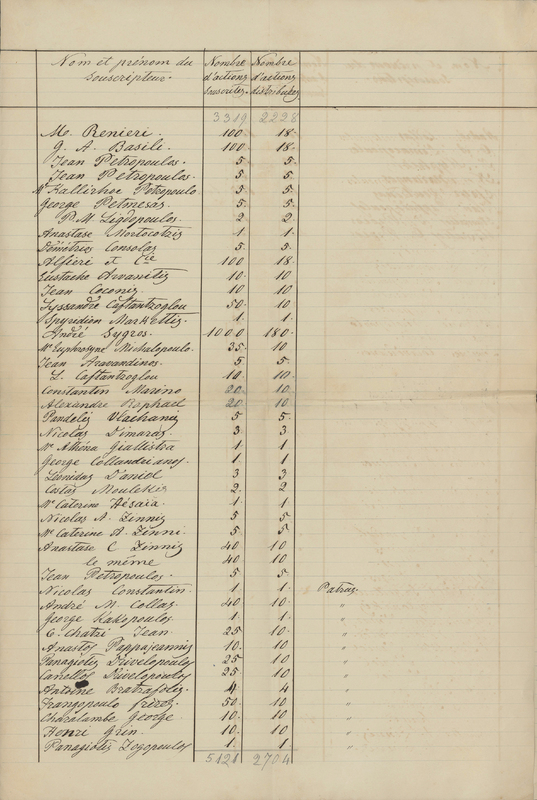 Nom et prénom du souscripteur. Nombre d'actions souscrites Nombre d'actions distribuées
3319 2228
M. Renieri. 100. 18.
G. A. Basili. 100. 18.
Jean Petropoulos. 5. 5.
Jean Petropoulos. 5. 5.
Mᵉ Kallirhoe Petropoulo. 5. 5.
George Petmesas. 5. 5.
P. M. Ligdopoulos. 2. 2.
Anastase Mortocotzis 1. 1.
Démétrios Consolas 5. 5.
Alfieri et Cie 100. 18.
Eustache Arvanitis 10. 10.
Jean Coconis 10. 10
Lyssandre Caftantzoglou 50. 10.
Spyridion Markettis. 1. 1.
André Sygros. 1000. 180.
Mᵉ Euphrosyne Michalopoulo. 35. 10
Jean Aravandinos. 5 5.
L. Caftantzoglou 10. 10.
Constantin Marino 20. 10.
Alexandre Raphael 20. 10.
Pandelis Vlachanis 5 5.
Nicolas Dimaras 3. 3.
Mᵉ Athéna Giallistra 1 1
George Collandrianos. 1. 1.
Léonidas Daniol 3 3
Costas Moulekis 2. 2.
Mᵉ Caterine Hésaia. 1 1.
Nicolas A. Zinnis 5 5
Mᵉ Caterine A. Zinni. 5 5.
Anastase C Zinnis 40 10.
le même 40 10
Jean Petropoulos. 5 5.
Nicolas Constantin. 1. 1. Patras.
André M. Collas 40 10. "
George Kakopoulos 1. 1. "
C. Chatzi Jean 25 10. "
Anastos Pappajeannis 10. 10 "
Panagiotis Drivelopoulos 25 10 "
Canellos Drivelopoulos 25. 10 "
Antoine 4. 4 "
Frangopoulo frères. 50. 10 "
Charalambe George 10. 10. "
Henri Grin. 10. 10 "
Panagiotis Zogopoulos 1. 1. "
5121 2704